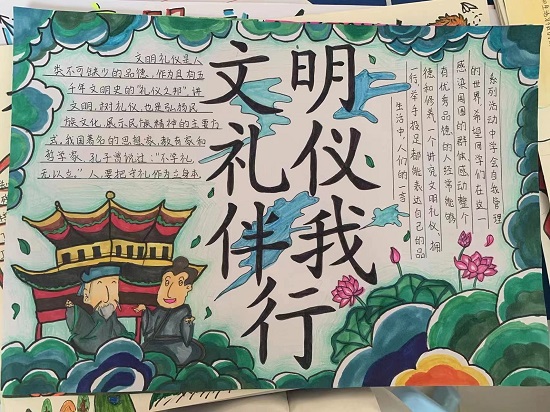 文明
礼仪
伴我
行
文明礼仪是人
类不可缺少的品德,作为具有五
千年文明史的"礼仪之邦",讲
文明,树礼仪,也是弘扬民
族文化,展示民族精神的主要方
式,我国著名的思想家,教育家和
哲学家,孔子曾说过:"不学礼,
无以立。"人,要把守礼作为立身本
生活中,人们的一言
行,举手投足都能表达自己的品
德和修养。一个讲究文明礼仪,拥
有优秀品德的人经常能够
感染周围的群体感动整个
的世界,希望同学们在这一
系列活动中学会自我管理